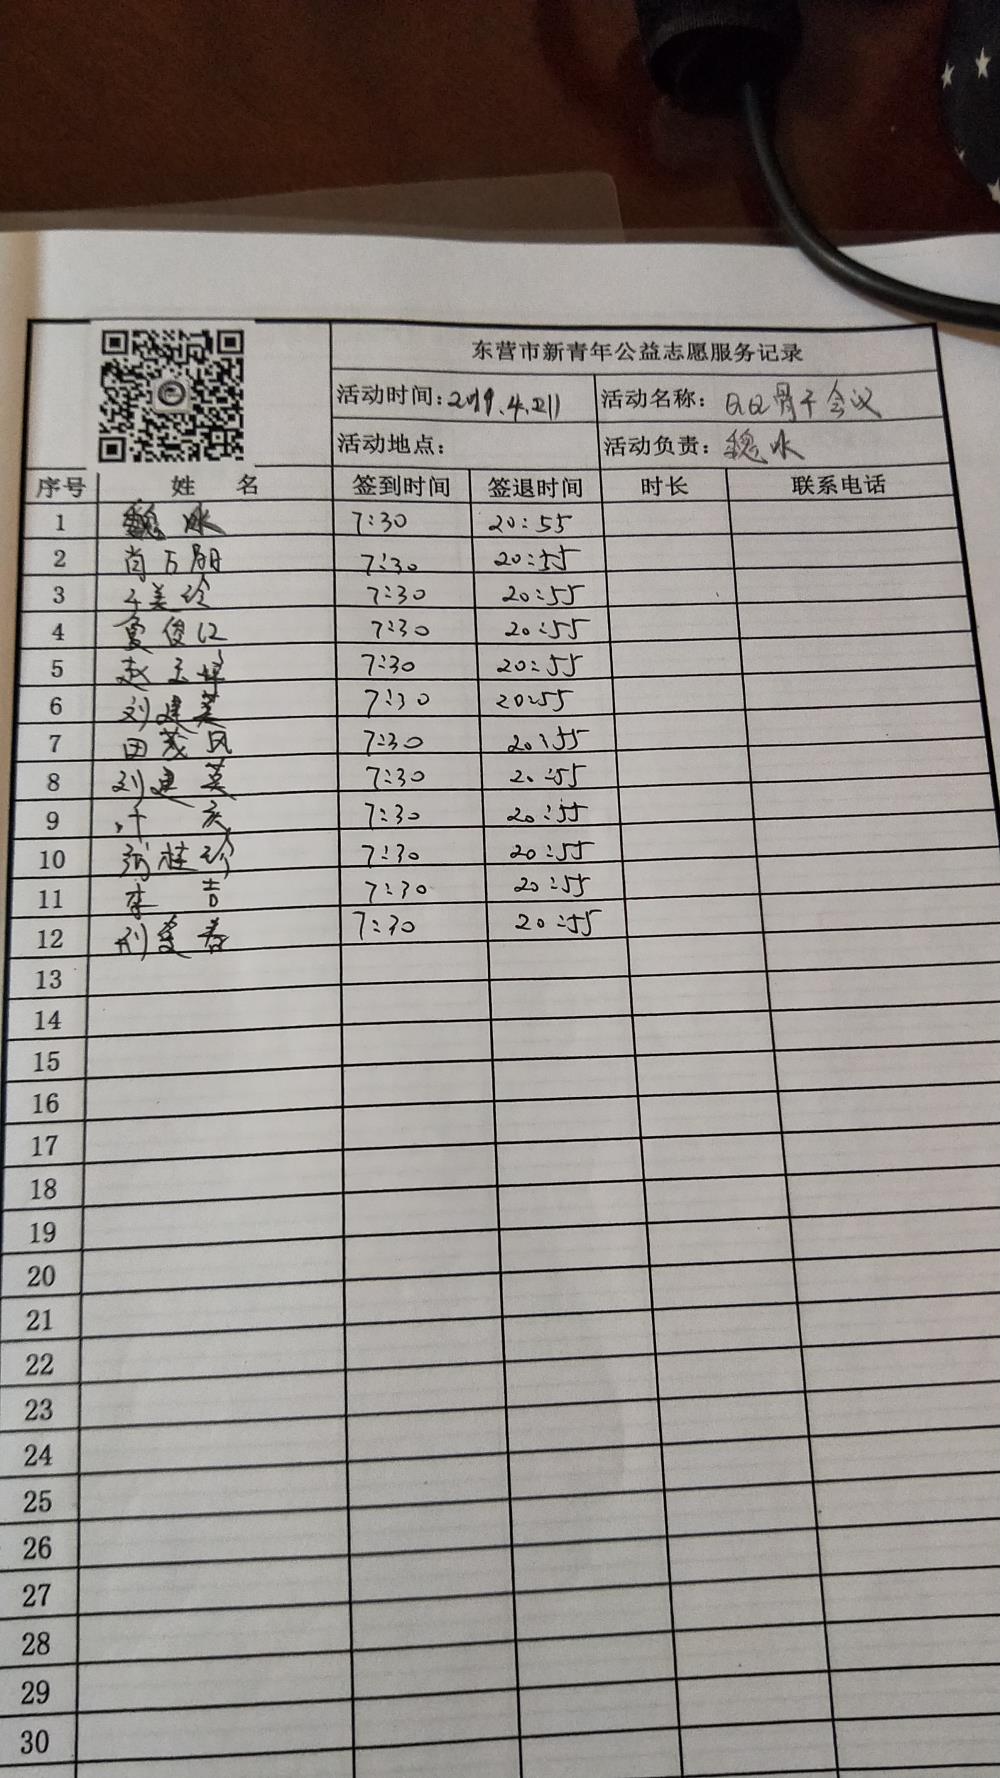 东营市新青年公益志愿服务记录
活动时间: 2019.4.211 活动名称: QQ骨干会议
活动地点: 活动负责: 魏冰
序号 姓 名 签到时间 签退时间 时长 联系电话
1 魏冰 7:30 20:55
2 肖万朋 7:30 20:55
3 美玲 7:30 20:55
4 夏俊江 7:30 20:55
5 赵玉 7:30 20:55
6 刘建英 7:30 20:55
7 田茂凤 7:30 20:55
8 刘建英 7:30 20:55
9 7:30 20:55
10 张桂珍 7:30 20:55
11 李吉 7:30 20:55
12 春 7:30 20:55
13
14
15
16
17
18
19
20
21
22
23
24
25
26
27
28
29
30